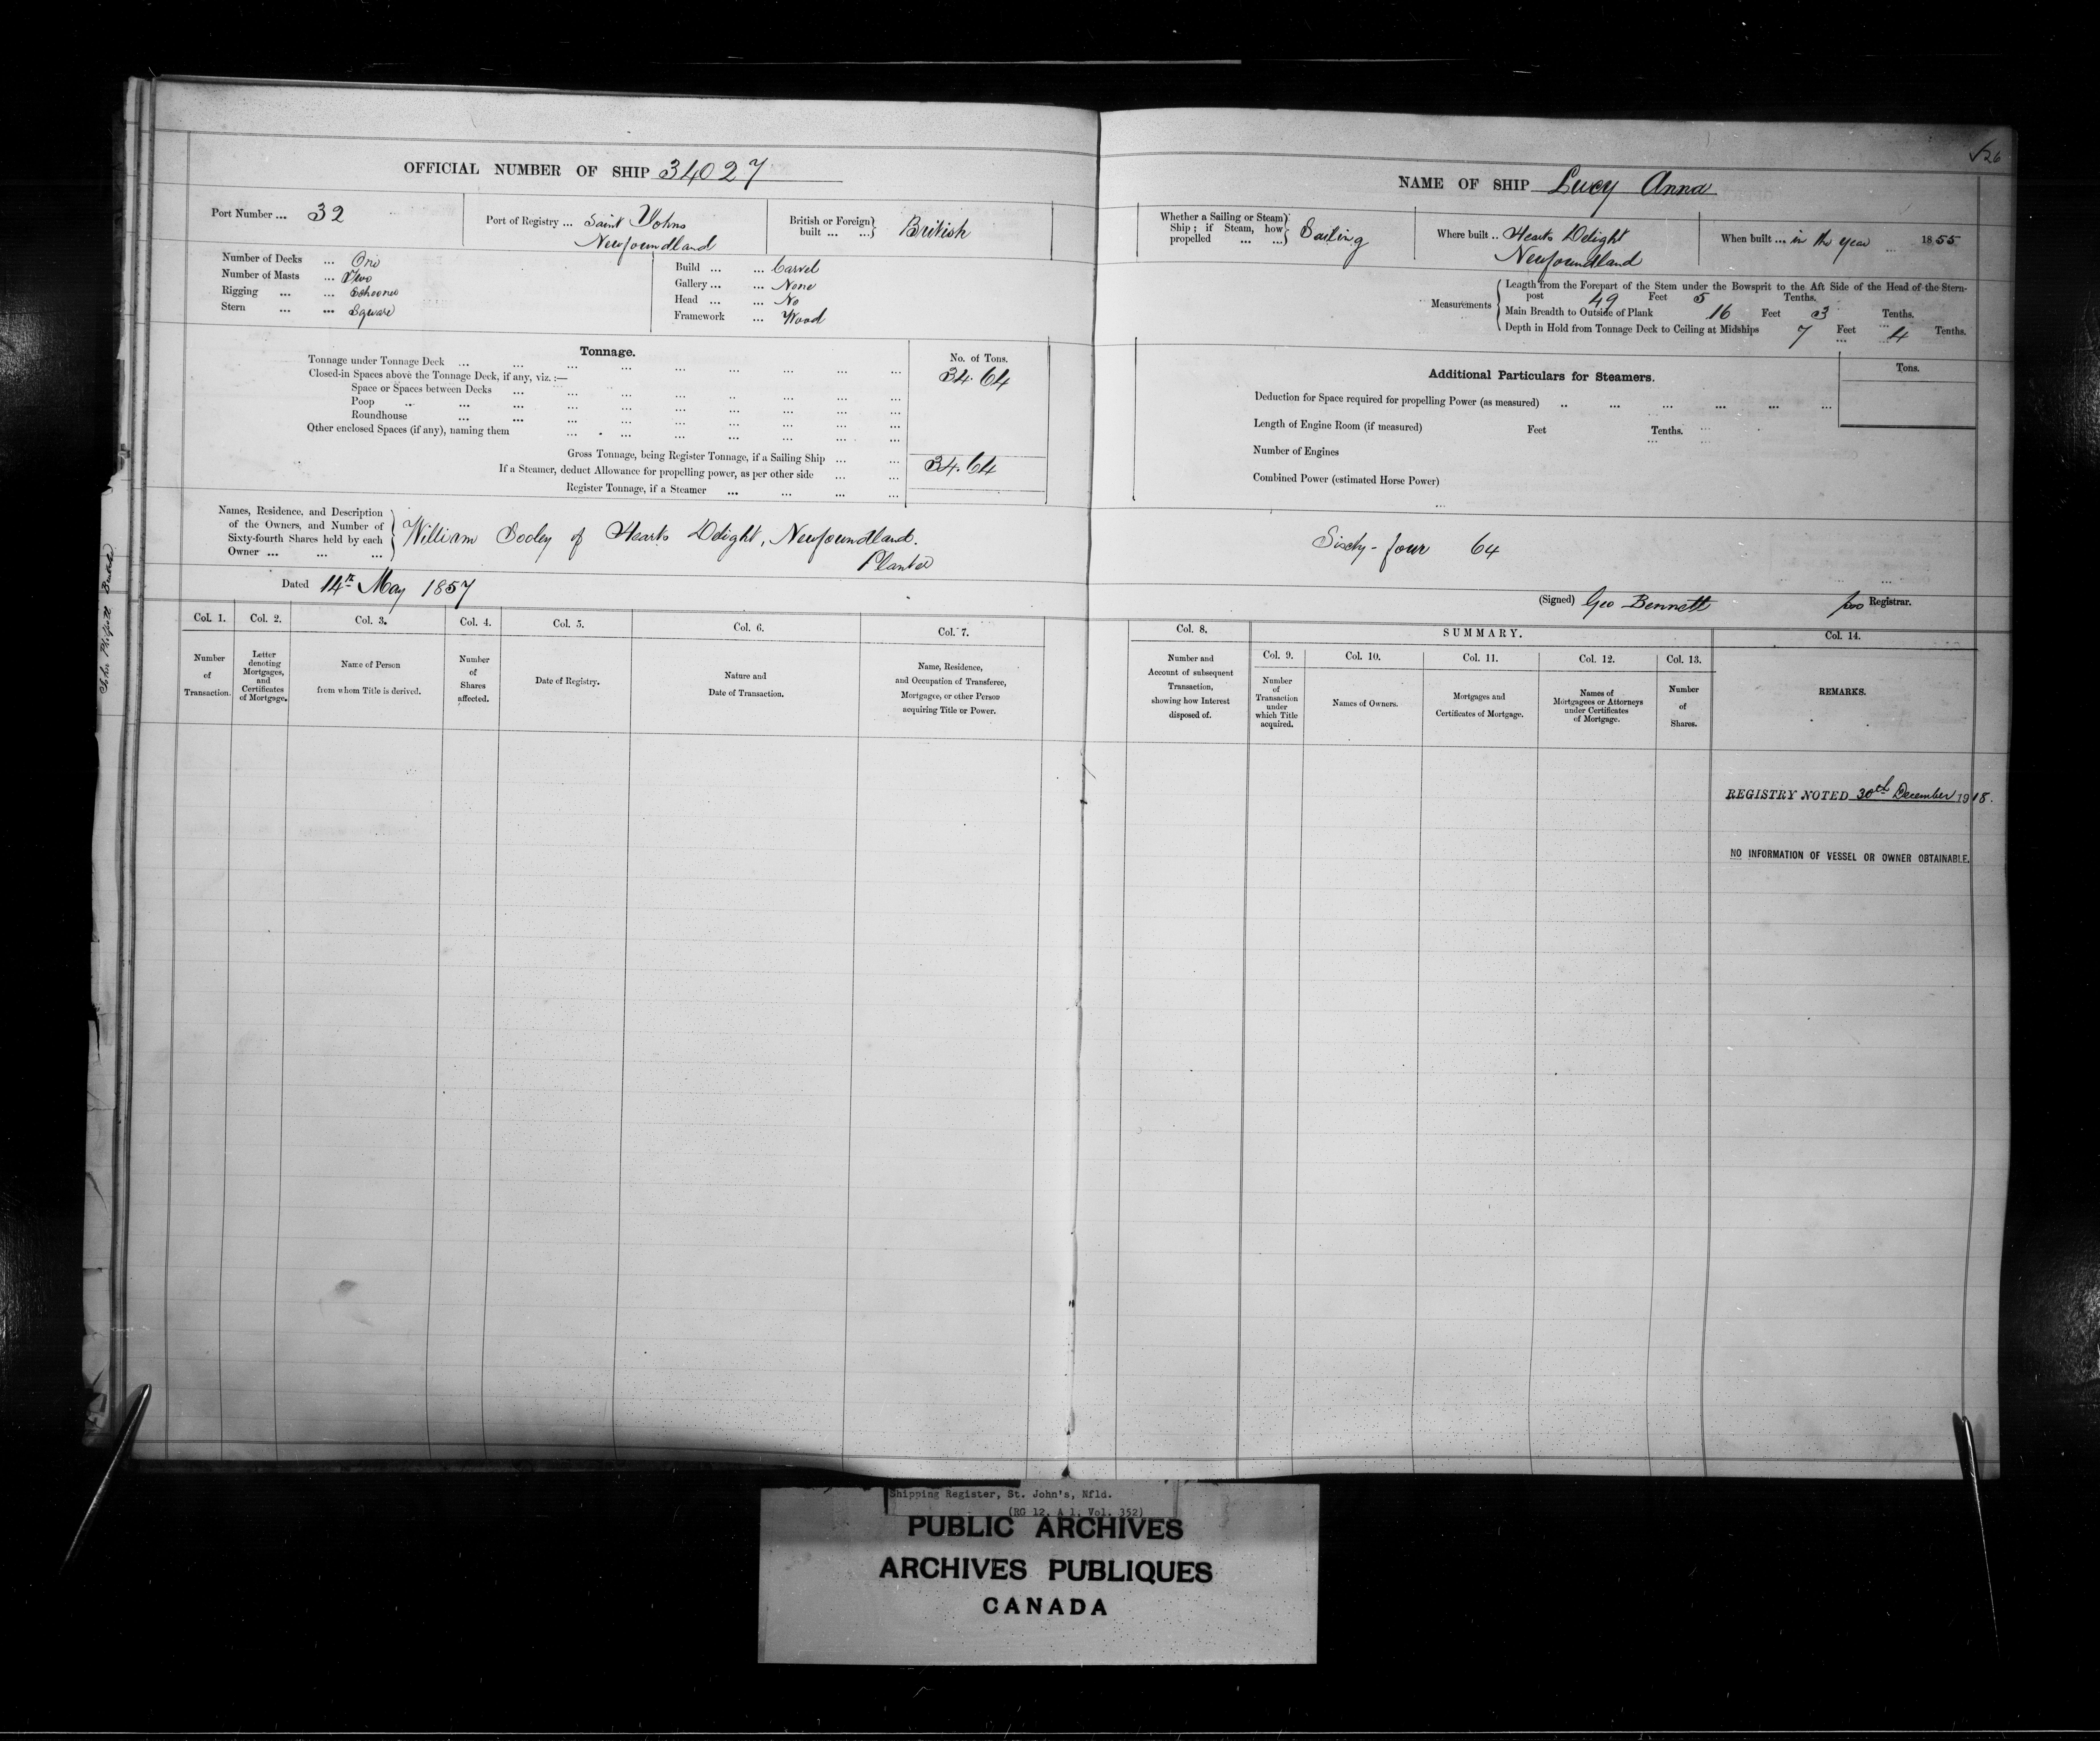 √26
OFFICIAL NUMBER OF SHIP 34027
Port Number ... 32
Port of Registry ... Saint Johns
Newfoundland
British or Foreign
built ... ... British
Number of Decks ... One
Number of Masts ... Two
Rigging ... ... Schooner
Stern ... ... Square
Build ... ... Carvel
Gallery ... ... None
Head ... ... No
Framework ... Wood
Tonnage.
No. of Tons.
Tonnage under Tonnage Deck ... 34.64
Closed-in Spaces above the Tonnage Deck, if any, viz. :—
Space or Spaces between Decks ...
Poop ...
Roundhouse ...
Other enclosed Spaces (if any), naming them ...
Gross Tonnage, being Register Tonnage, if a Sailing Ship ... ... 34.64
If a Steamer, deduct Allowance for propelling power, as per other side ... ...
Register Tonnage, if a Steamer ... ... ... ...
Names, Residence, and Description
of the Owners, and Number of
Sixty-fourth Shares held by each
Owner ... ... ...
William Sooley of Hearts Delight, Newfoundland.
Planter
Dated 14th May 1857
Col. 1. Col. 2. Col. 3. Col. 4. Col. 5. Col. 6. Col. 7.
Number
of
Transaction.
Letter
denoting
Mortgages,
and
Certificates
of Mortgage.
Name of Person
from whom Title is derived.
Number
of
Shares
affected.
Date of Registry.
Nature and
Date of Transaction.
Name, Residence,
and Occupation of Transferee,
Mortgagee, or other Person
acquiring Title or Power.
NAME OF SHIP Lucy Anna
Whether a Sailing or Steam
Ship ; if Steam, how
propelled ... ... Sailing
Where built .. Hearts Delight
Newfoundland
When built ... in the year ... 1855
Measurements
Length from the Forepart of the Stem under the Bowsprit to the Aft Side of the Head of the Stern-
post 49 Feet 5 Tenths.
Main Breadth to Outside of Plank 16 Feet 3 Tenths.
Depth in Hold from Tonnage Deck to Ceiling at Midships 7 Feet 4 Tenths.
Additional Particulars for Steamers.
Tons.
Deduction for Space required for propelling Power (as measured) .. ... ... ... ... ...
Length of Engine Room (if measured) Feet Tenths.
Number of Engines
Combined Power (estimated Horse Power)
Sixty-four 64
(Signed) Geo Bennett pro Registrar.
Col. 8. SUMMARY. Col. 14.
Col. 9. Col. 10. Col. 11. Col. 12. Col. 13.
Number and
Account of subsequent
Transaction,
showing how Interest
disposed of.
Number
of
Transaction
under
which Title
acquired.
Names of Owners.
Mortgages and
Certificates of Mortgage.
Names of
Mortgagees or Attorneys
under Certificates
of Mortgage.
Number
of
Shares.
REMARKS.
REGISTRY NOTED 30th December 1918.
NO INFORMATION OF VESSEL OR OWNER OBTAINABLE.
Shipping Register, St. John's, Nfld.
(RG 12, A 1, Vol. 352)
PUBLIC ARCHIVES
ARCHIVES PUBLIQUES
CANADA